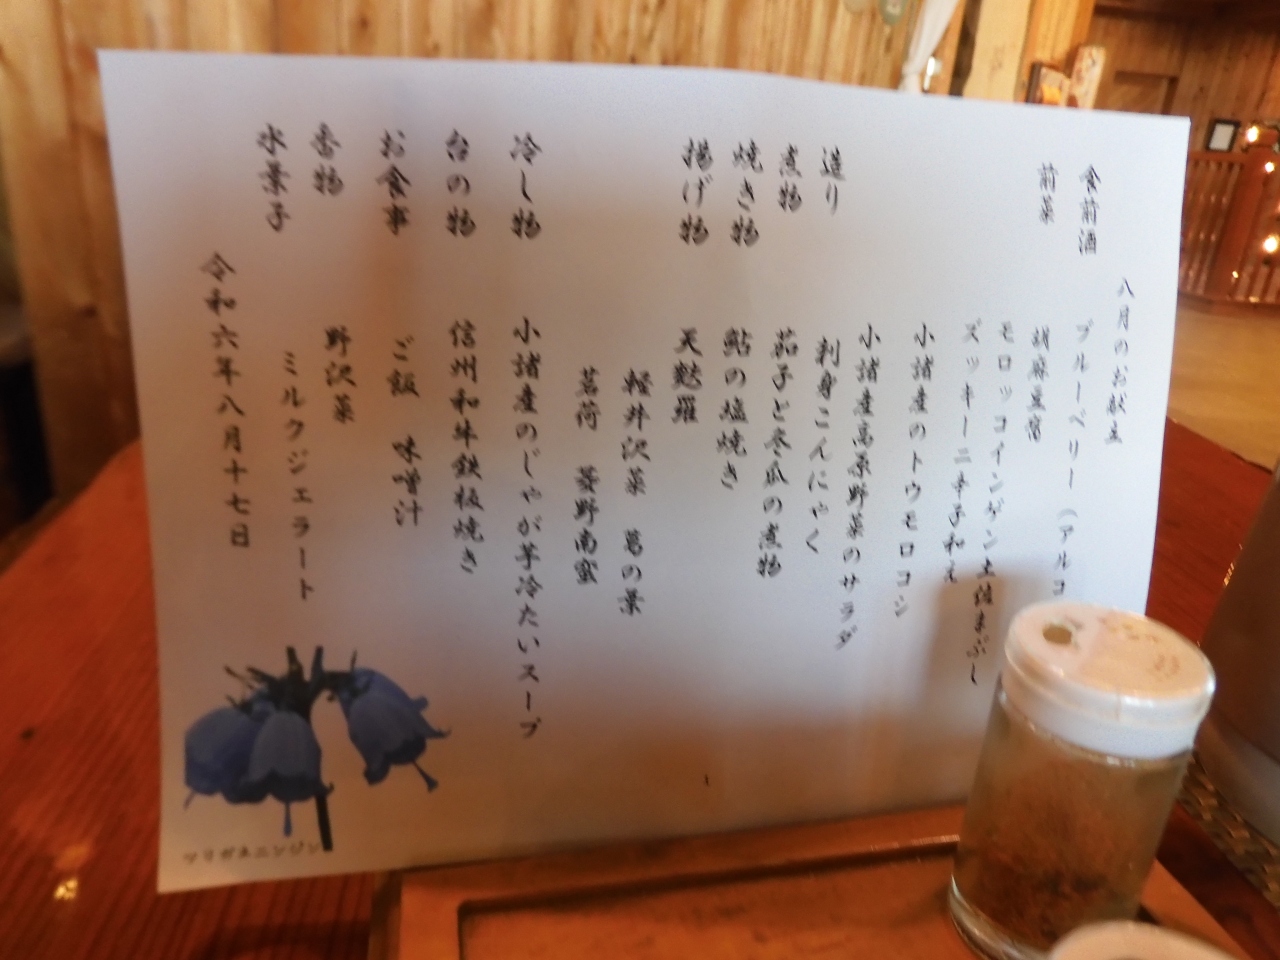 八月のお献立
食前酒 ブルーベリー (アルコ
前菜 胡麻豆腐
モロッコインゲン土佐まぶし
ズッキーニ辛子和え
小諸産のトウモロコシ
小諸産高原野菜のサラダ
造り 刺身こんにゃく
煮物 茄子と冬瓜の煮物
焼き物 鮎の塩焼き
揚げ物 天麩羅
軽井沢菜 葛の葉
茗荷 菱野南蛮
冷し物 小諸産のじゃが芋冷たいスープ
台の物 信州和牛鉄板焼き
お食事 ご飯 味噌汁
香物 野沢菜
水菓子 ミルクジェラート
令和六年八月十七日
ツリガネニンジン
1